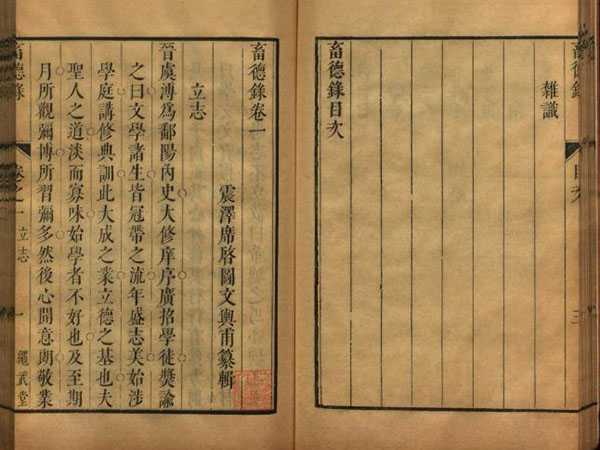 畜德錄
三
雜識
畜德錄目次
畜德錄卷一
震澤席啓圖文輿甫纂輯
立志
晉虞溥爲鄱陽內史大修庠序廣招學徒獎諭
之曰文學諸生皆冠帶之流年盛志美始涉
學庭講修典訓此大成之業立德之基也夫
聖人之道淡而寡味始學者不好也及至期
月所觀彌博所習彌多然後心開意朗敬業
畜德錄 卷之一 立志 一 繩武堂